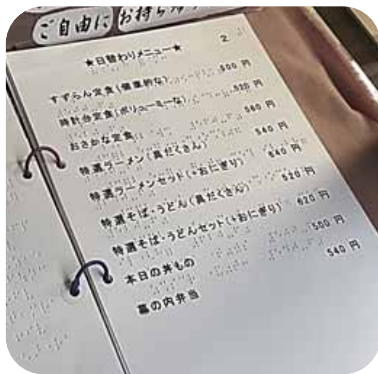 ご自由にお持ち
★日替わりメニュー★ 2
すずらん定食(健康的な) 500 円
時計台定食(ボリューミーな) 520 円
おさかな定食 560 円
特選ラーメン(具だくさん) 540 円
特選ラーメンセット(+おにぎり) 640 円
特選そば・うどん(具だくさん) 520 円
特選そば・うどんセット(+おにぎり) 620 円
本日の丼もの 500 円
幕の内弁当 540 円